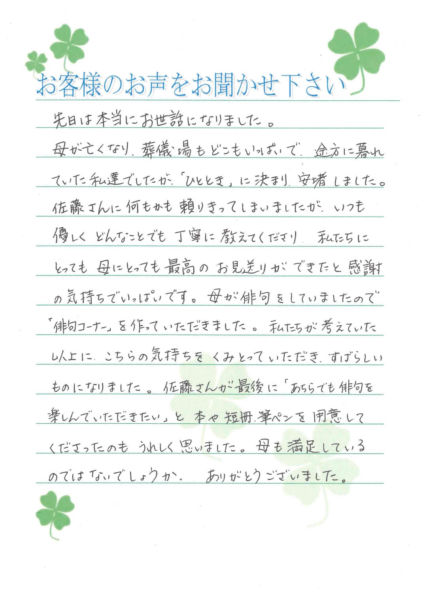 お客様のお声をお聞かせ下さい
先日は本当にお世話になりました。
母が亡くなり、葬儀場もどこもいっぱいで、途方に暮れ
ていた私達でしたが、「ひととき」に決まり、安堵しました。
佐藤さんに何もかも頼りきってしまいましたが、いつも
優しくどんなことでも丁寧に教えてくださり、私たちに
とっても母にとっても最高のお見送りができたと感謝
の気持ちでいっぱいです。母が俳句をしていましたので
「俳句コーナー」を作っていただきました。私たちが考えていた
以上に、こちらの気持ちをくみとっていただき、すばらしい
ものになりました。佐藤さんが最後に「あちらでも俳句を
楽しんでいただきたい」と本や短冊、筆ペンを用意して
くださったのもうれしく思いました。母も満足している
のではないでしょうか。ありがとうございました。